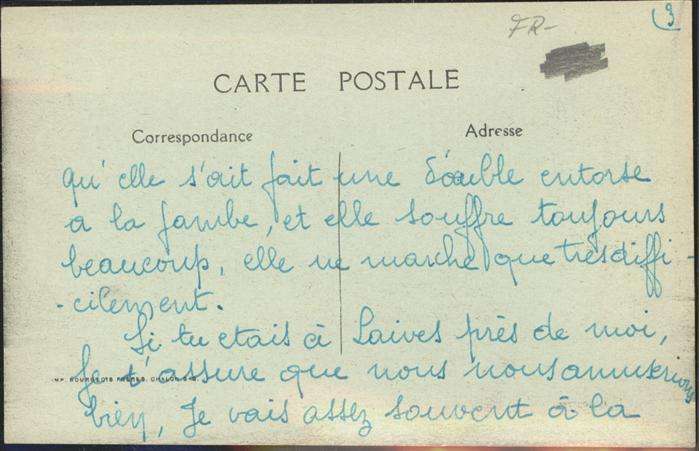 3
FR-
CARTE POSTALE
Correspondance
Adresse
qu'elle s'ait fait une double entorse
a la jambe, et elle souffre toujours
beaucoup, elle ne marche que très diffi-
-cilement.
Si tu etais à Laives près de moi,
Je t'assure que nous nous amuserions
bien, Je vais assez souvent à la
IMP. BOURGEOIS FRÈRES, CHALON-S-S.